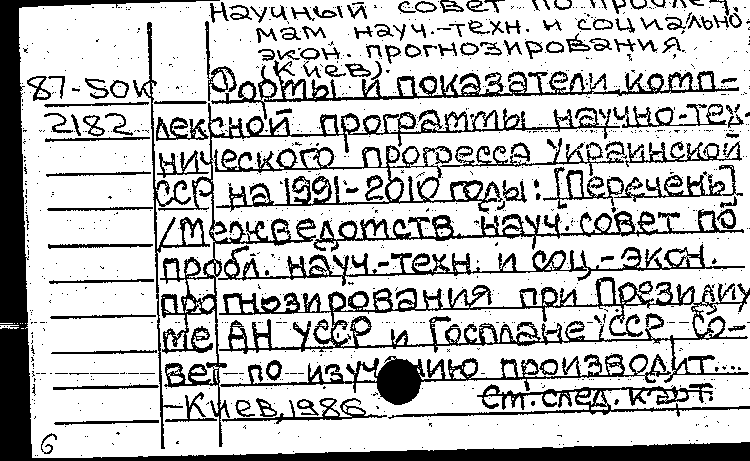 Научный совет по проблем.
мам науч.-техн. и социально-
экон. прогнозирования
(Киев).
87-50к Формы и показатели комп-
2182 лексной программы научно-тех-
нического прогресса Украинской
ССР на 1991-2010 годы: [Перечень]
/Межведомств. науч. совет по
пробл. науч.-техн. и соц.-экон.
прогнозирования при Президиу-
ме АН УССР и Госплане УССР, Со-
вет по изучению производит....
-Киев, 1986 См. след. карт.
6